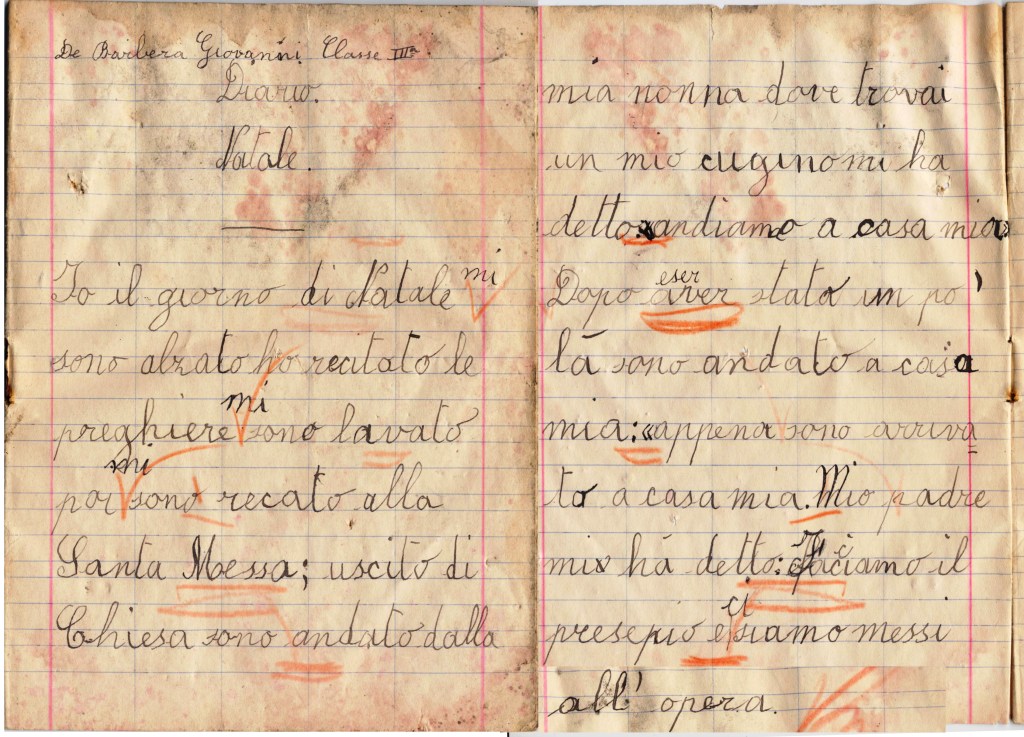 De Barbera Giovanni Classe IIIª.
Diario.
Natale.
mi
Io il giorno di Natale
sono alzato ho recitato le
mi
preghiere sono lavato
mi
poi sono recato alla
Santa Messa; uscito di
Chiesa sono andato dalla
mia nonna dove trovai
un mio cugino mi ha
detto: «andiamo a casa mia»
eser
Dopo aver stato un po'
là sono andato a casa
mia: «appena sono arriva
to a casa mia. Mio padre
mi há detto: Faciamo il
ci
presepio e siamo messi
all' opera.